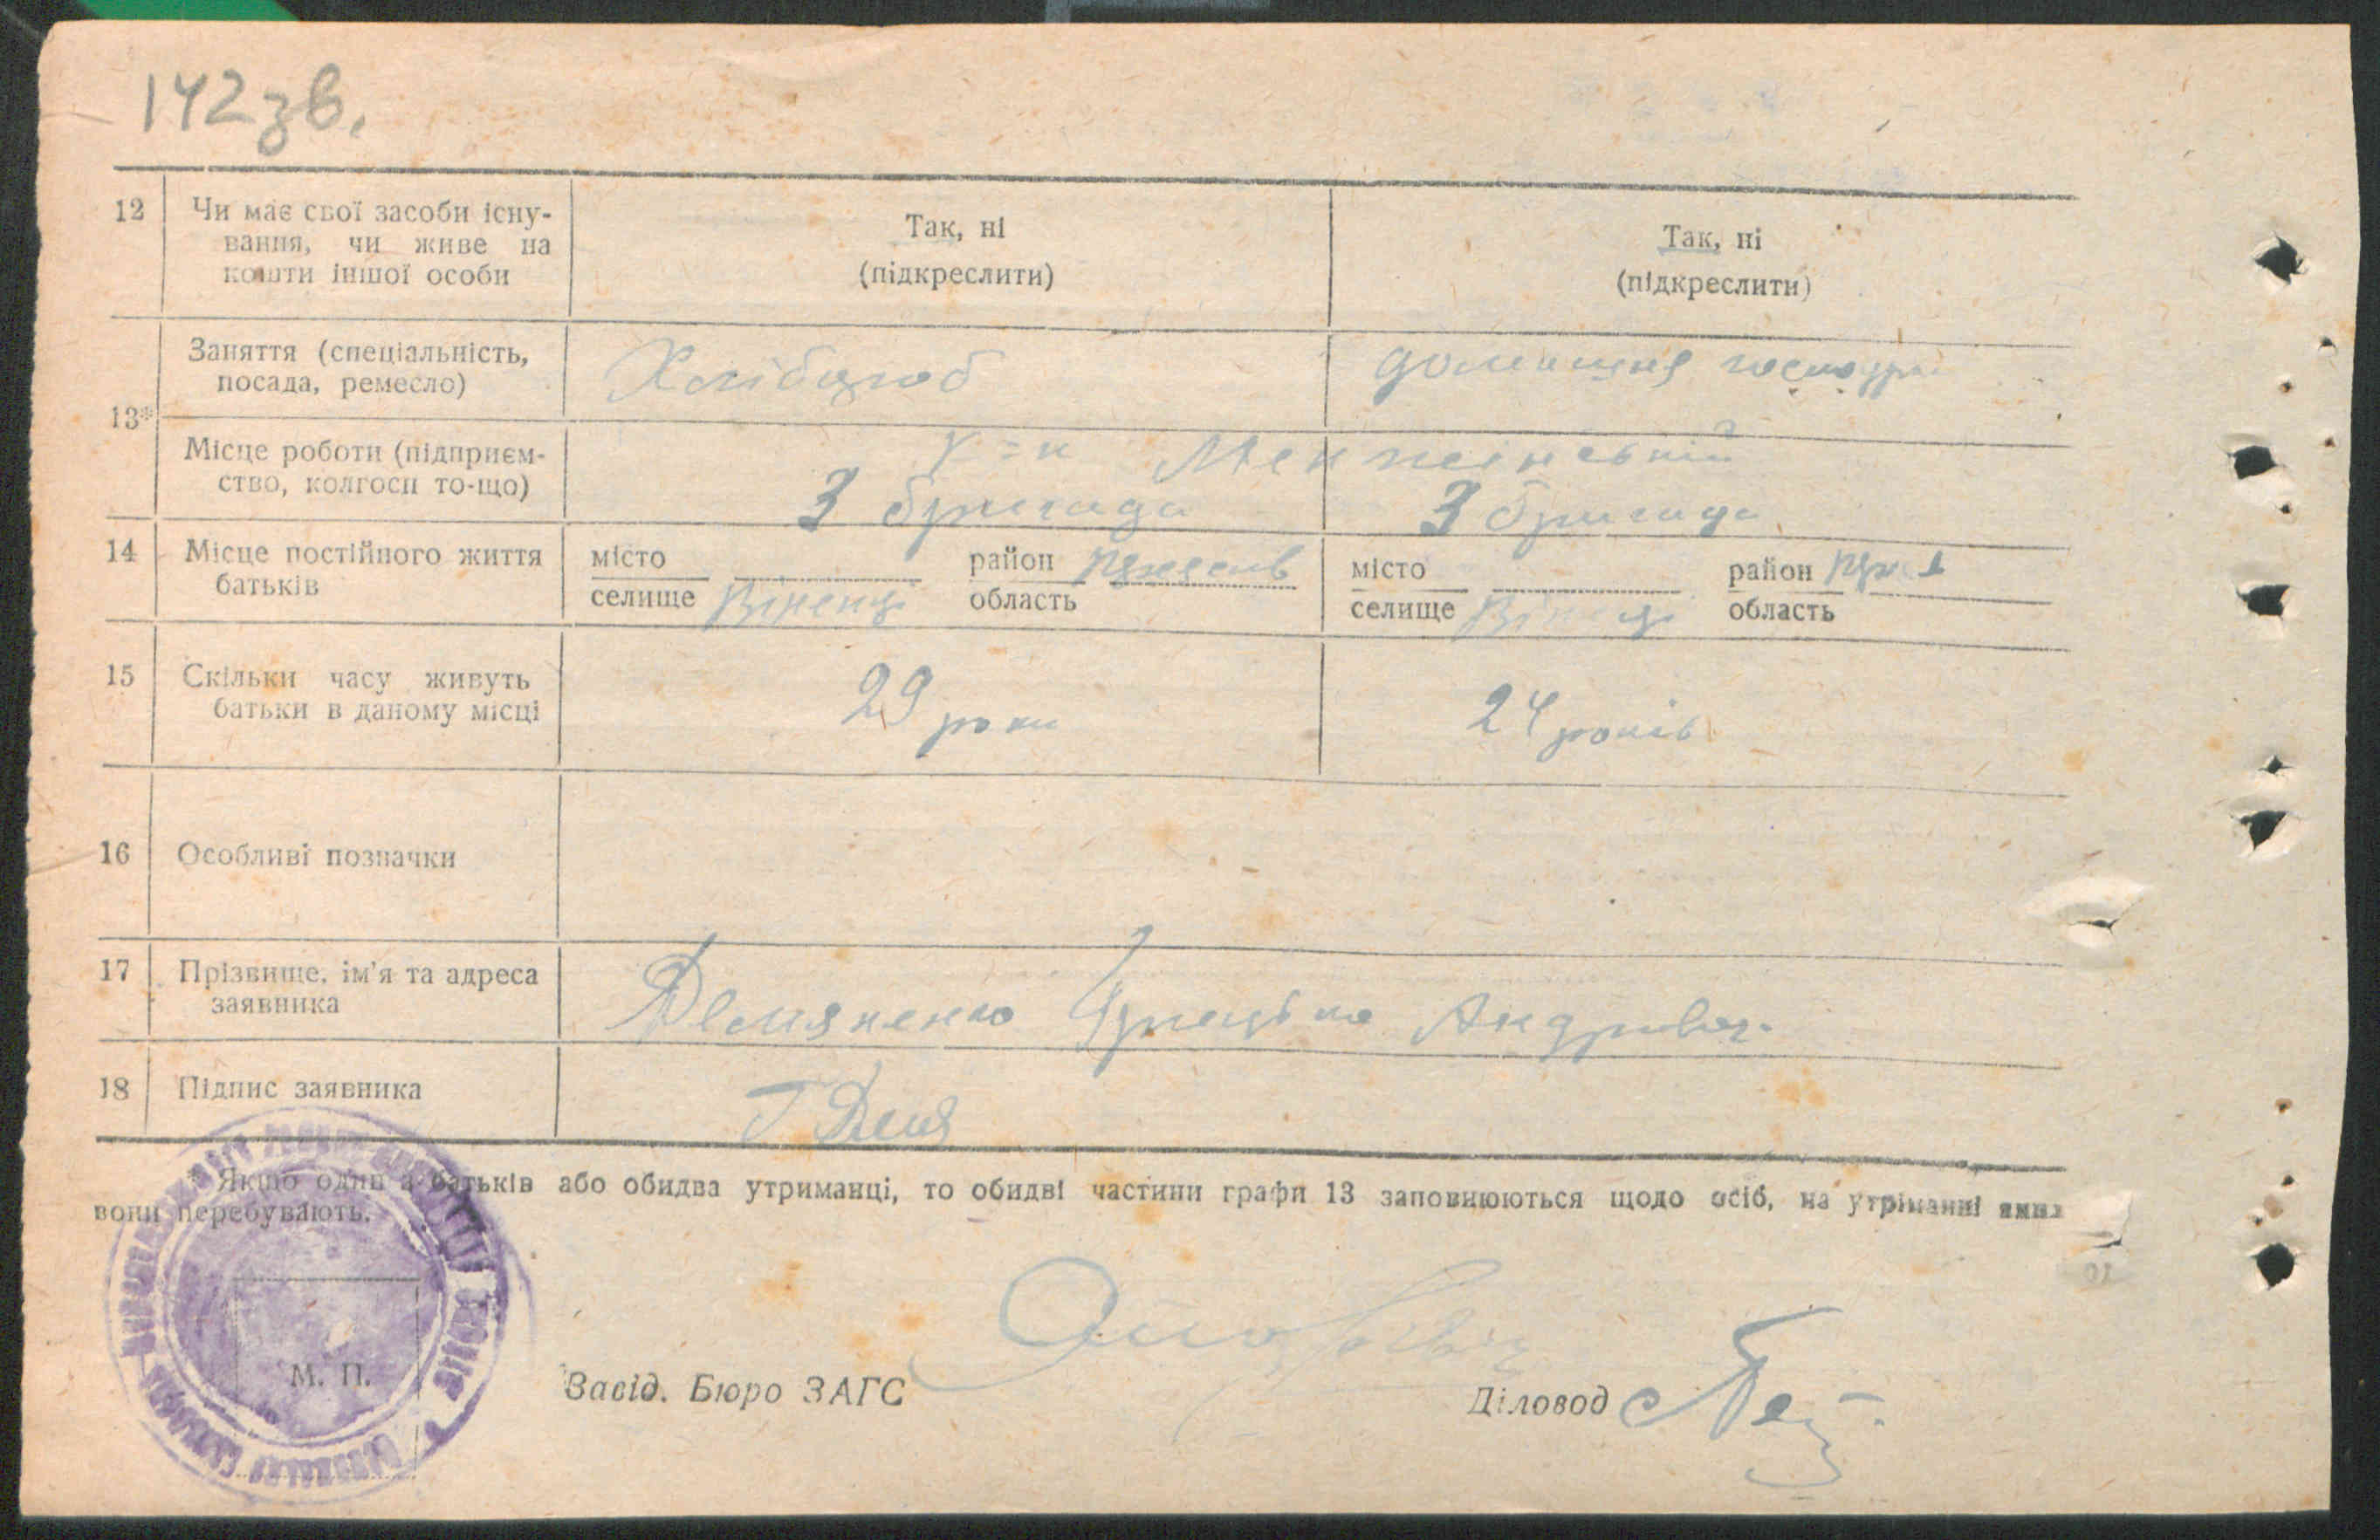 142 зв.
12 Чи має свої засоби існу- Так, ні Так, ні
вання, чи живе на
кошти іншої особи (підкреслити) (підкреслити)
Заняття (спеціальність, Хлібороб домашня
посада, ремесло)
13*
Місце роботи (підприєм-
ство, колгосп то-що) 3 бригада 3 бригада
14 Місце постійного життя місто район місто район
батьків селище область селище область
15 Скільки часу живуть 29 роки 24 років
батьки в даному місці
16 Особливі позначки
17 Прізвище, ім'я та адреса Демяненко Андрієвич
заявника
18 Підпис заявника
* Якщо один з батьків або обидва утриманці, то обидві частини графи 13 заповнюються щодо осіб, на утриманні яких
вони перебувають.
М. П.
Завід. Бюро ЗАГС Діловод